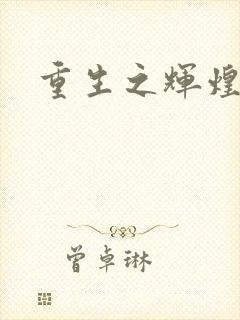 重生之辉煌
曾卓琳